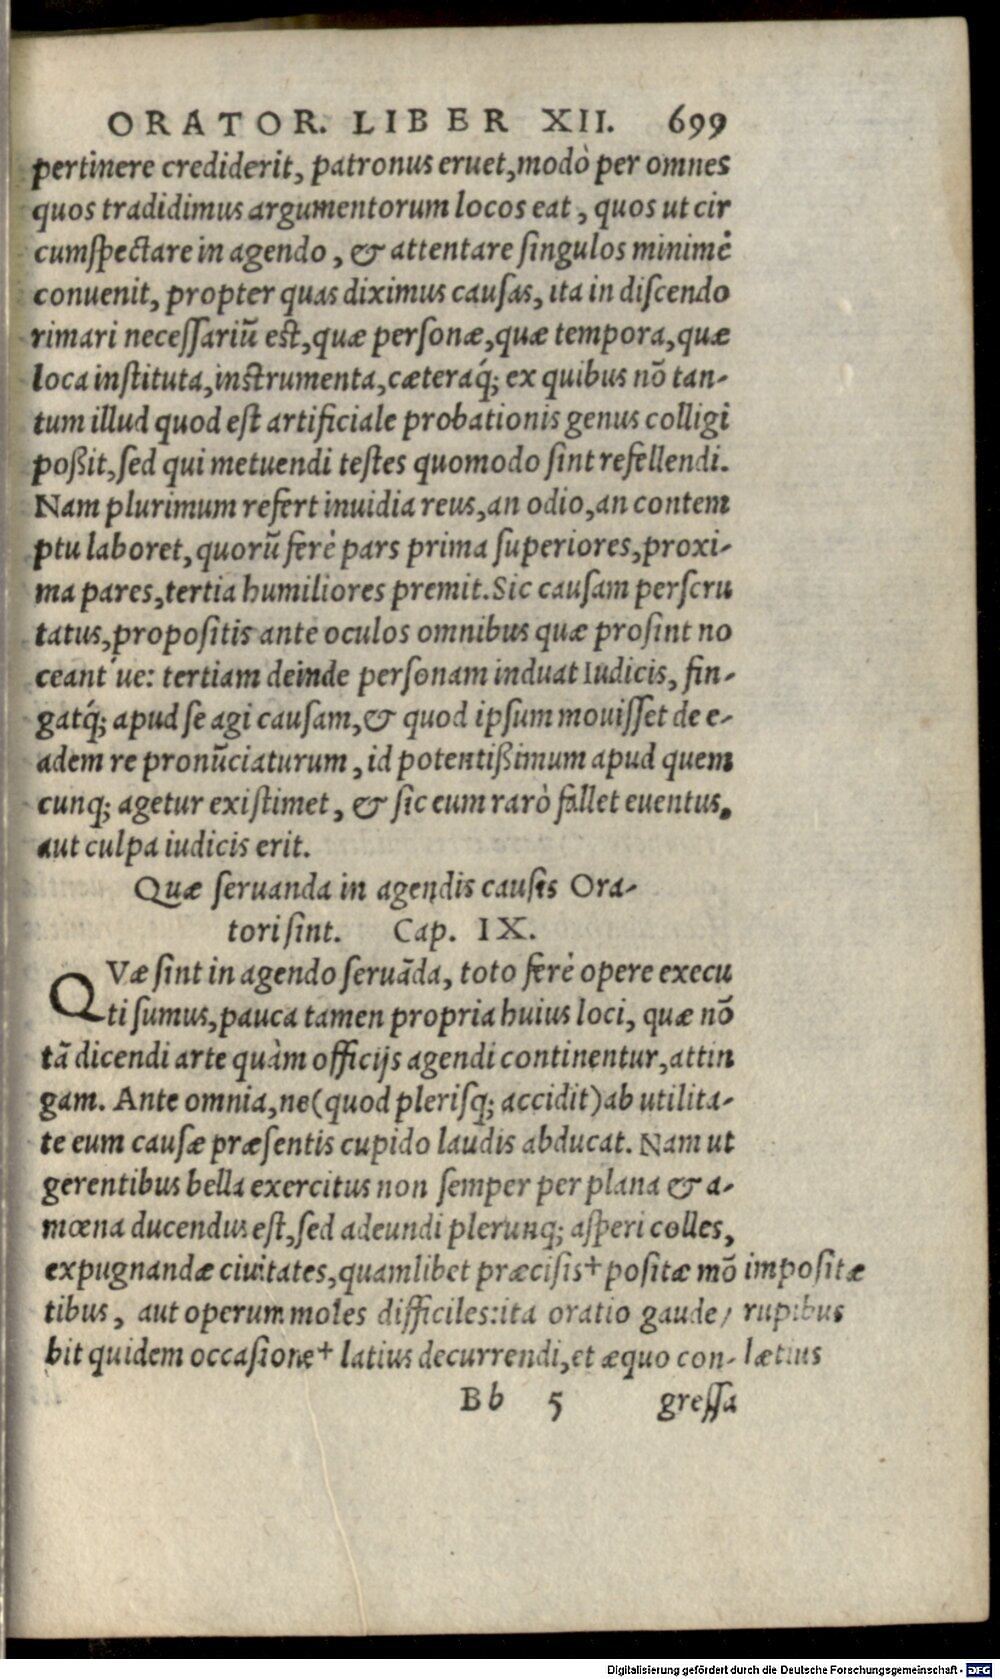 ORATOR. LIBER XII. 699
pertinere crediderit, patronus eruet, modò per omnes
quos tradidimus argumentorum locos eat, quos ut cir
cumspectare in agendo, & attentare singulos minimè
conuenit, propter quas diximus causas, ita in discendo
rimari necessariũ est, quæ personæ, quæ tempora, quæ
loca instituta, instrumenta, cæteraq́; ex quibus nõ tan-
tum illud quod est artificiale probationis genus colligi
poßit, sed qui metuendi testes quomodo sint refellendi.
Nam plurimum refert inuidia reus, an odio, an contem
ptu laboret, quorũ ferè pars prima superiores, proxi-
ma pares, tertia humiliores premit. Sic causam perscru
tatus, propositis ante oculos omnibus quæ prosint no
ceant´ue: tertiam deinde personam induat Iudicis, fin-
gatq́; apud se agi causam, & quod ipsum mouisset de e-
adem re pronũciaturum, id potentißimum apud quem
cunq; agetur existimet, & sic eum rarò fallet euentus,
aut culpa iudicis erit.
Quæ seruanda in agendis causis Ora-
tori sint. Cap. IX.
QVæ sint in agendo seruãda, toto ferè opere execu
ti sumus, pauca tamen propria huius loci, quæ nõ
tã dicendi arte quàm officijs agendi continentur, attin
gam. Ante omnia, ne (quod plerisq; accidit) ab utilita-
te eum causæ præsentis cupido laudis abducat. Nam ut
gerentibus bella exercitus non semper per plana & a-
mœna ducendus est, sed adeundi plerunq; asperi colles,
expugnandæ ciuitates, quamlibet præcisis+ positæ mõ impositæ
tibus, aut operum moles difficiles: ita oratio gaude- rupibus
bit quidem occasione+ latius decurrendi, et æquo con- lætius
Bb 5 gressa
Digitalisierung gefördert durch die Deutsche Forschungsgemeinschaft - DFG